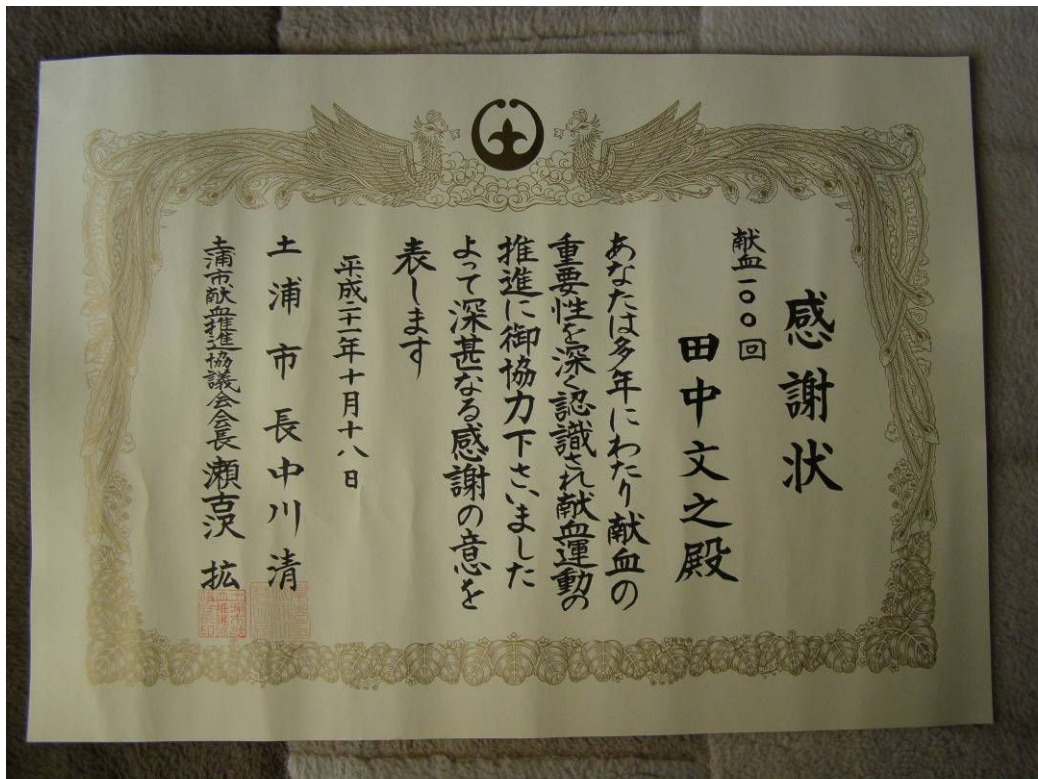 感謝状
献血一〇〇回
田中文之殿
あなたは多年にわたり献血の
重要性を深く認識され献血運動の
推進に御協力下さいました
よって深甚なる感謝の意を
表します
平成二十一年十月十八日
土浦市長中川清
土浦市献血推進協議会会長 瀬古沢 拡